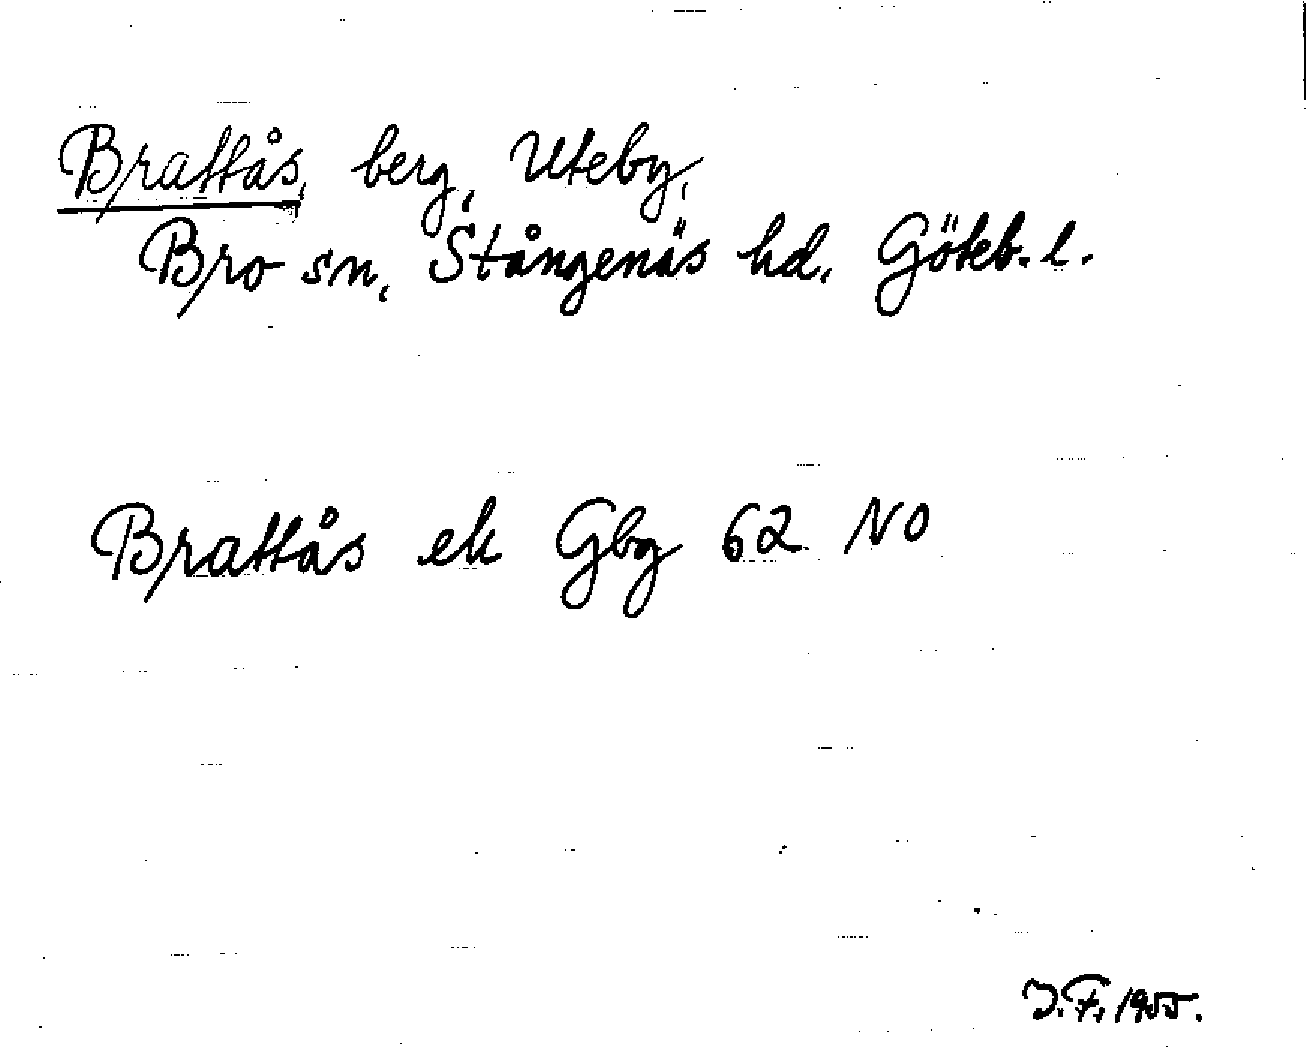 Brattås, berg, Uteby,
Bro sn, Stångenäs hd. Göteb. l.
Brattås ek Gbg 62 NO
J.F. 1955.